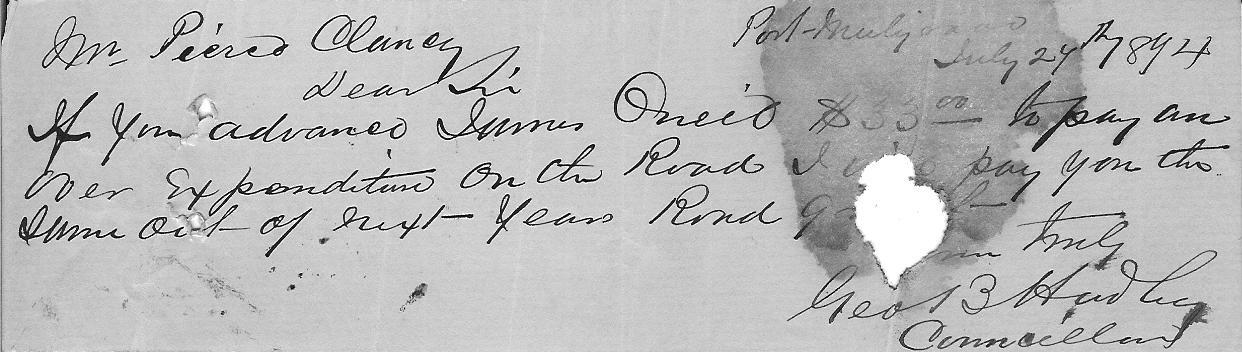 Port-Mulgrave
July 24th 1894
Mr Pierce Clancy
Dear Sir
If you advance James Oneil $33.00 to pay an
over Expenditure on the Road I will pay you the
same out of next years Road
Yours truly
Geo B Hadley
Councillor